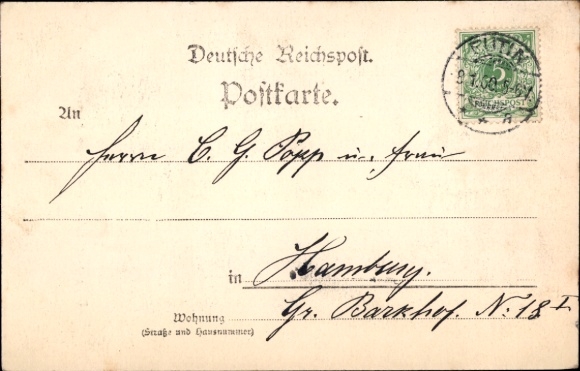 EUTIN
5
REICHSPOST
Deutsche Reichspost.
Postkarte.
An
Herrn C. G. Popp u. Frau
in Hamburg.
Gr. Barkhof. No: 18 I
Wohnung
(Straße und Hausnummer)